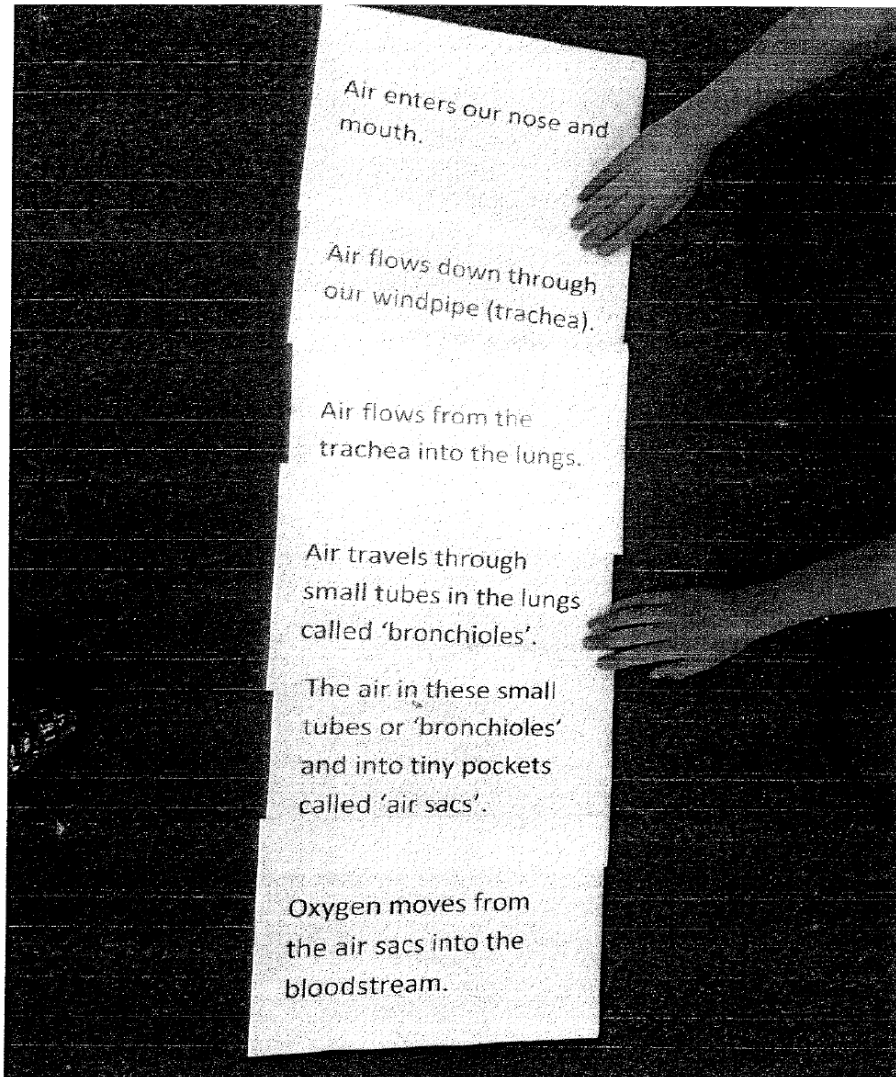 Air enters our nose and
mouth.
Air flows down through
our windpipe (trachea).
Air flows from the
trachea into the lungs.
Air travels through
small tubes in the lungs
called ‘bronchioles’.
The air in these small
tubes or ‘bronchioles’
and into tiny pockets
called ‘air sacs’.
Oxygen moves from
the air sacs into the
bloodstream.